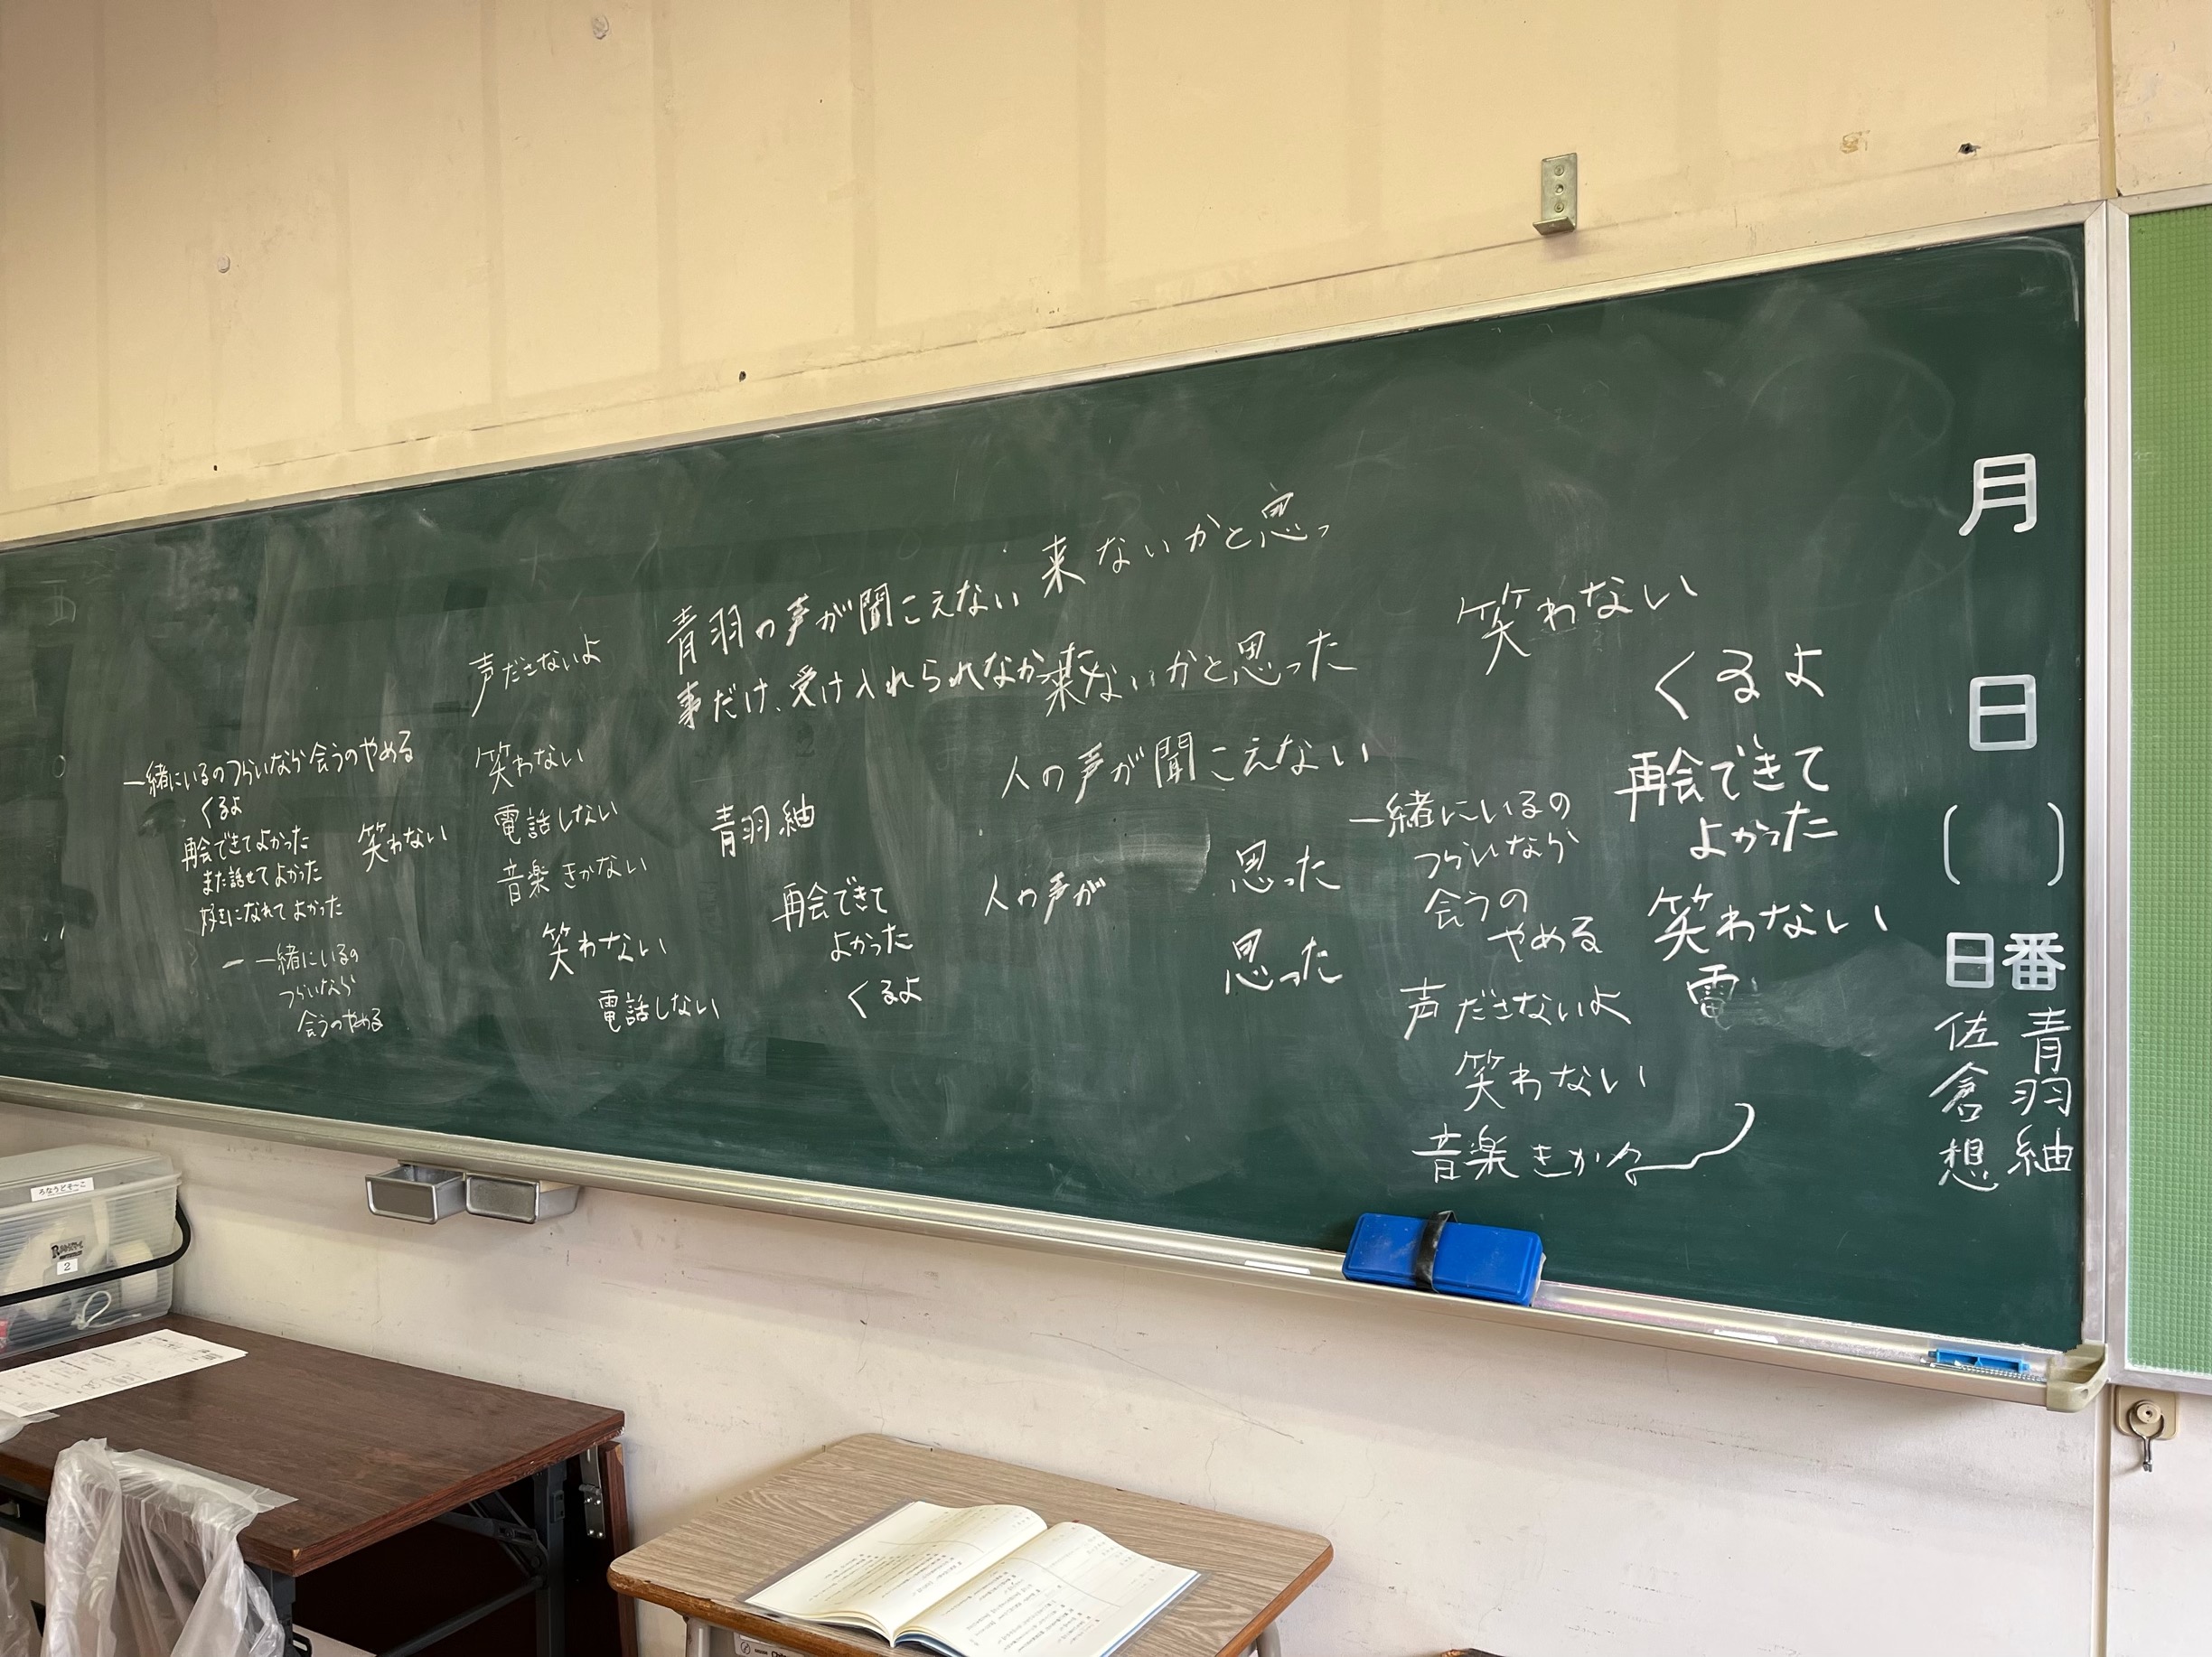 月
日
( )
日番
青羽紬
佐倉想
来ないかと思っ
青羽の声が聞こえない
事だけ、受け入れられなかった
来ないかと思った
人の声が聞こえない
人の声が
思った
思った
笑わない
くるよ
再会できて
よかった
笑わない
電
一緒にいるの
つらいなら
会うの
やめる
声ださないよ
笑わない
音楽きかな
声ださないよ
笑わない
電話しない
音楽きかない
笑わない
電話しない
青羽紬
再会できて
よかった
くるよ
一緒にいるのつらいなら会うのやめる
くるよ
再会できてよかった
また話せてよかった
好きになれてよかった
笑わない
一 一緒にいるの
つらいなら
会うのやめる
2